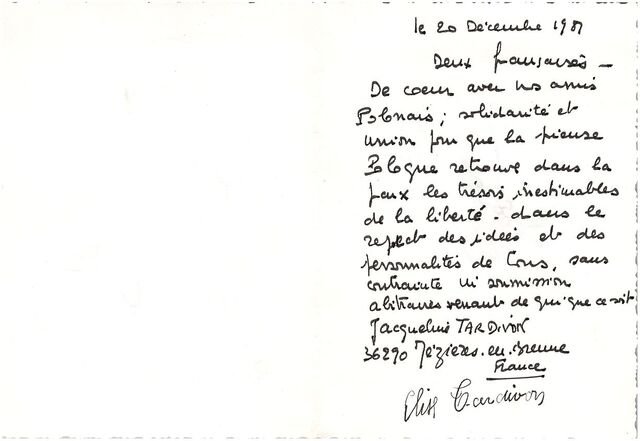 le 20 Décembre 1981
Deux françaises –
De coeur avec nos amis
Polonais ; solidarité et
union pour que la pieuse
Pologne retrouve dans la
paix les trésors inestimables
de la liberté - dans le
respect des idées et des
personnalités de tous, sans
contrainte ni soumission
abitraires venant de qui que ce soit
Jacqueline TARDIVON
36290 Mézières-en-Brenne
France
Elise Tardivon